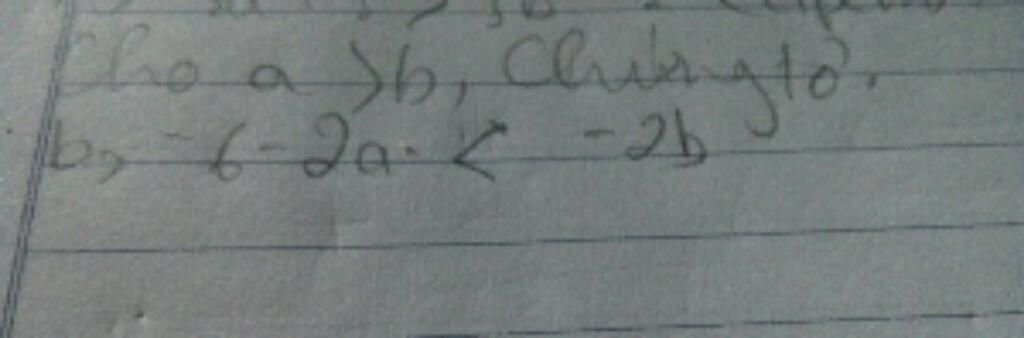 Cho a > b, Chứng tỏ.
b, -6 - 2a < -2b